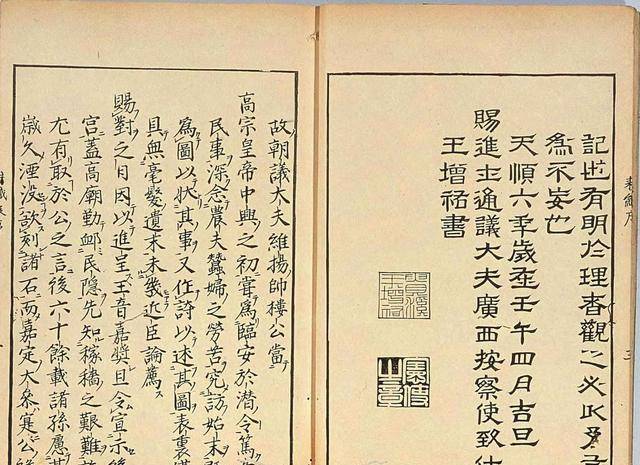 記也有明於理者觀之必以予
為不安也
天順六年歲在壬午四月吉旦
賜進士通議大夫廣西按察使致仕
王增祐書
故朝議大夫維揚帥樓公當
高宗皇帝中興之初嘗為臨安於潛令篤
民事深念農夫蠶婦之勞苦究訪始末
為圖以狀其事又作詩以述其圖表裏
具無毫髮遺末未幾近臣論薦
賜對之日因以進呈玉音嘉奬旦令宣示
宮蓋高廟勤䘏民隱先知稼穡之艱難
尤有取於公之言後六十餘載諸孫慮其
歲久湮沒欲刻諸石而嘉定太參寔公